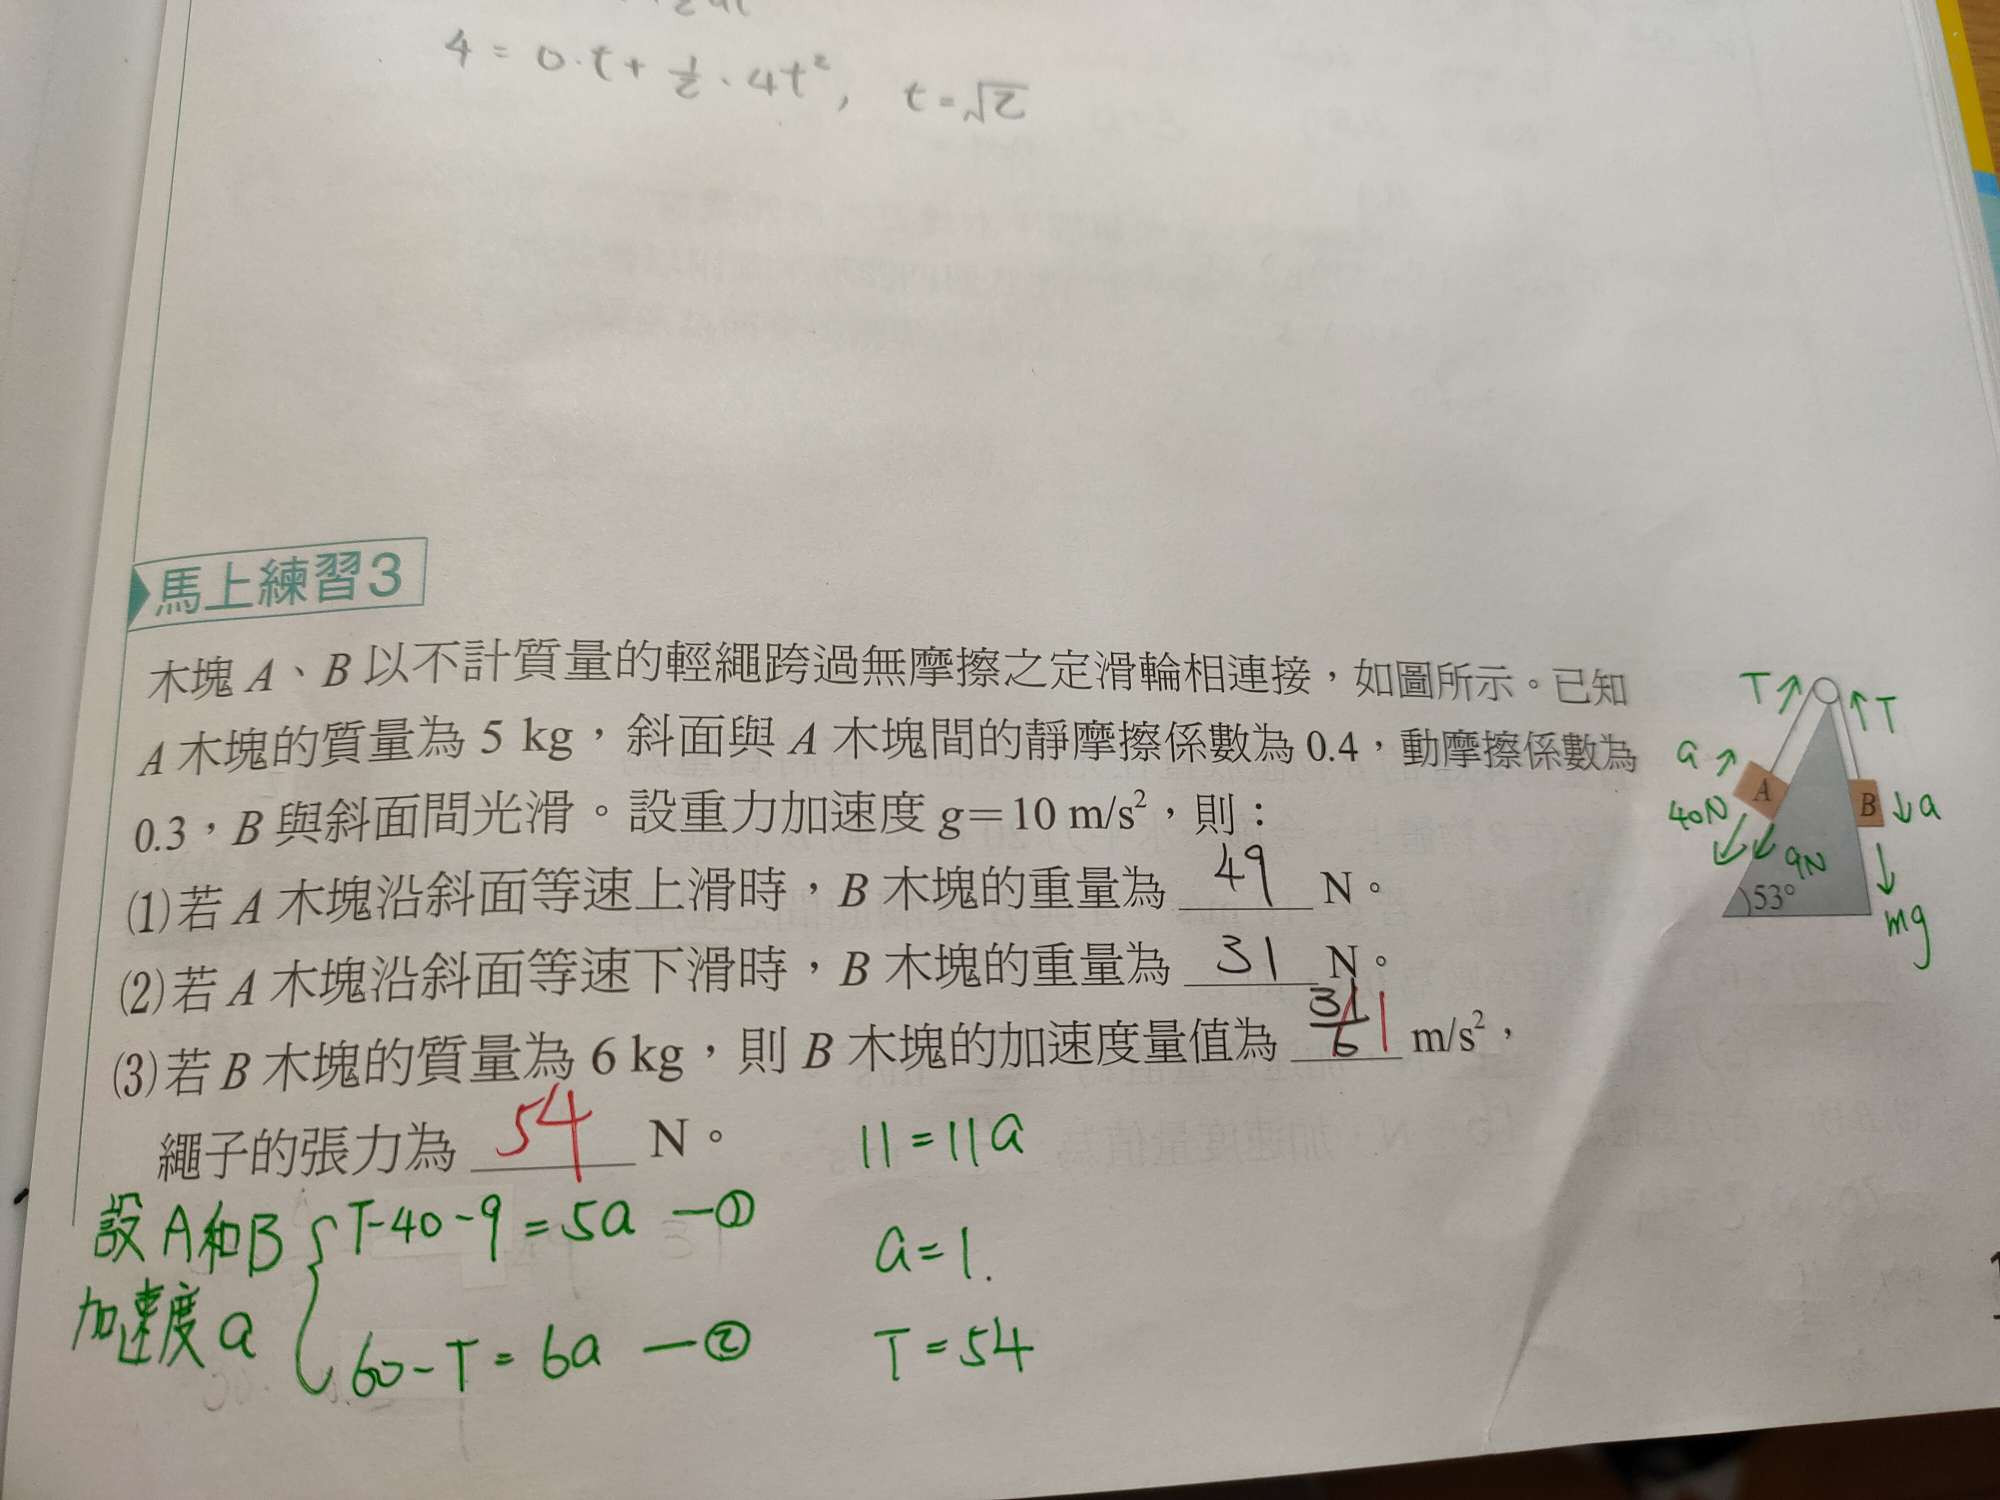 4 = 0·t + 1/2·4t², t = √2
馬上練習3
木塊 A、B 以不計質量的輕繩跨過無摩擦之定滑輪相連接，如圖所示。已知
A 木塊的質量為 5 kg，斜面與 A 木塊間的靜摩擦係數為 0.4，動摩擦係數為
0.3，B 與斜面間光滑。設重力加速度 g＝10 m/s²，則：
(1)若 A 木塊沿斜面等速上滑時，B 木塊的重量為 49 N。
(2)若 A 木塊沿斜面等速下滑時，B 木塊的重量為 31 N。
(3)若 B 木塊的質量為 6 kg，則 B 木塊的加速度量值為 31/6 1 m/s²，
繩子的張力為 54 N。
T
T
a
A
B
a
40N
9N
53°
mg
設A和B
加速度a
T-40-9=5a —①
60-T=6a —②
11=11a
a=1.
T=54